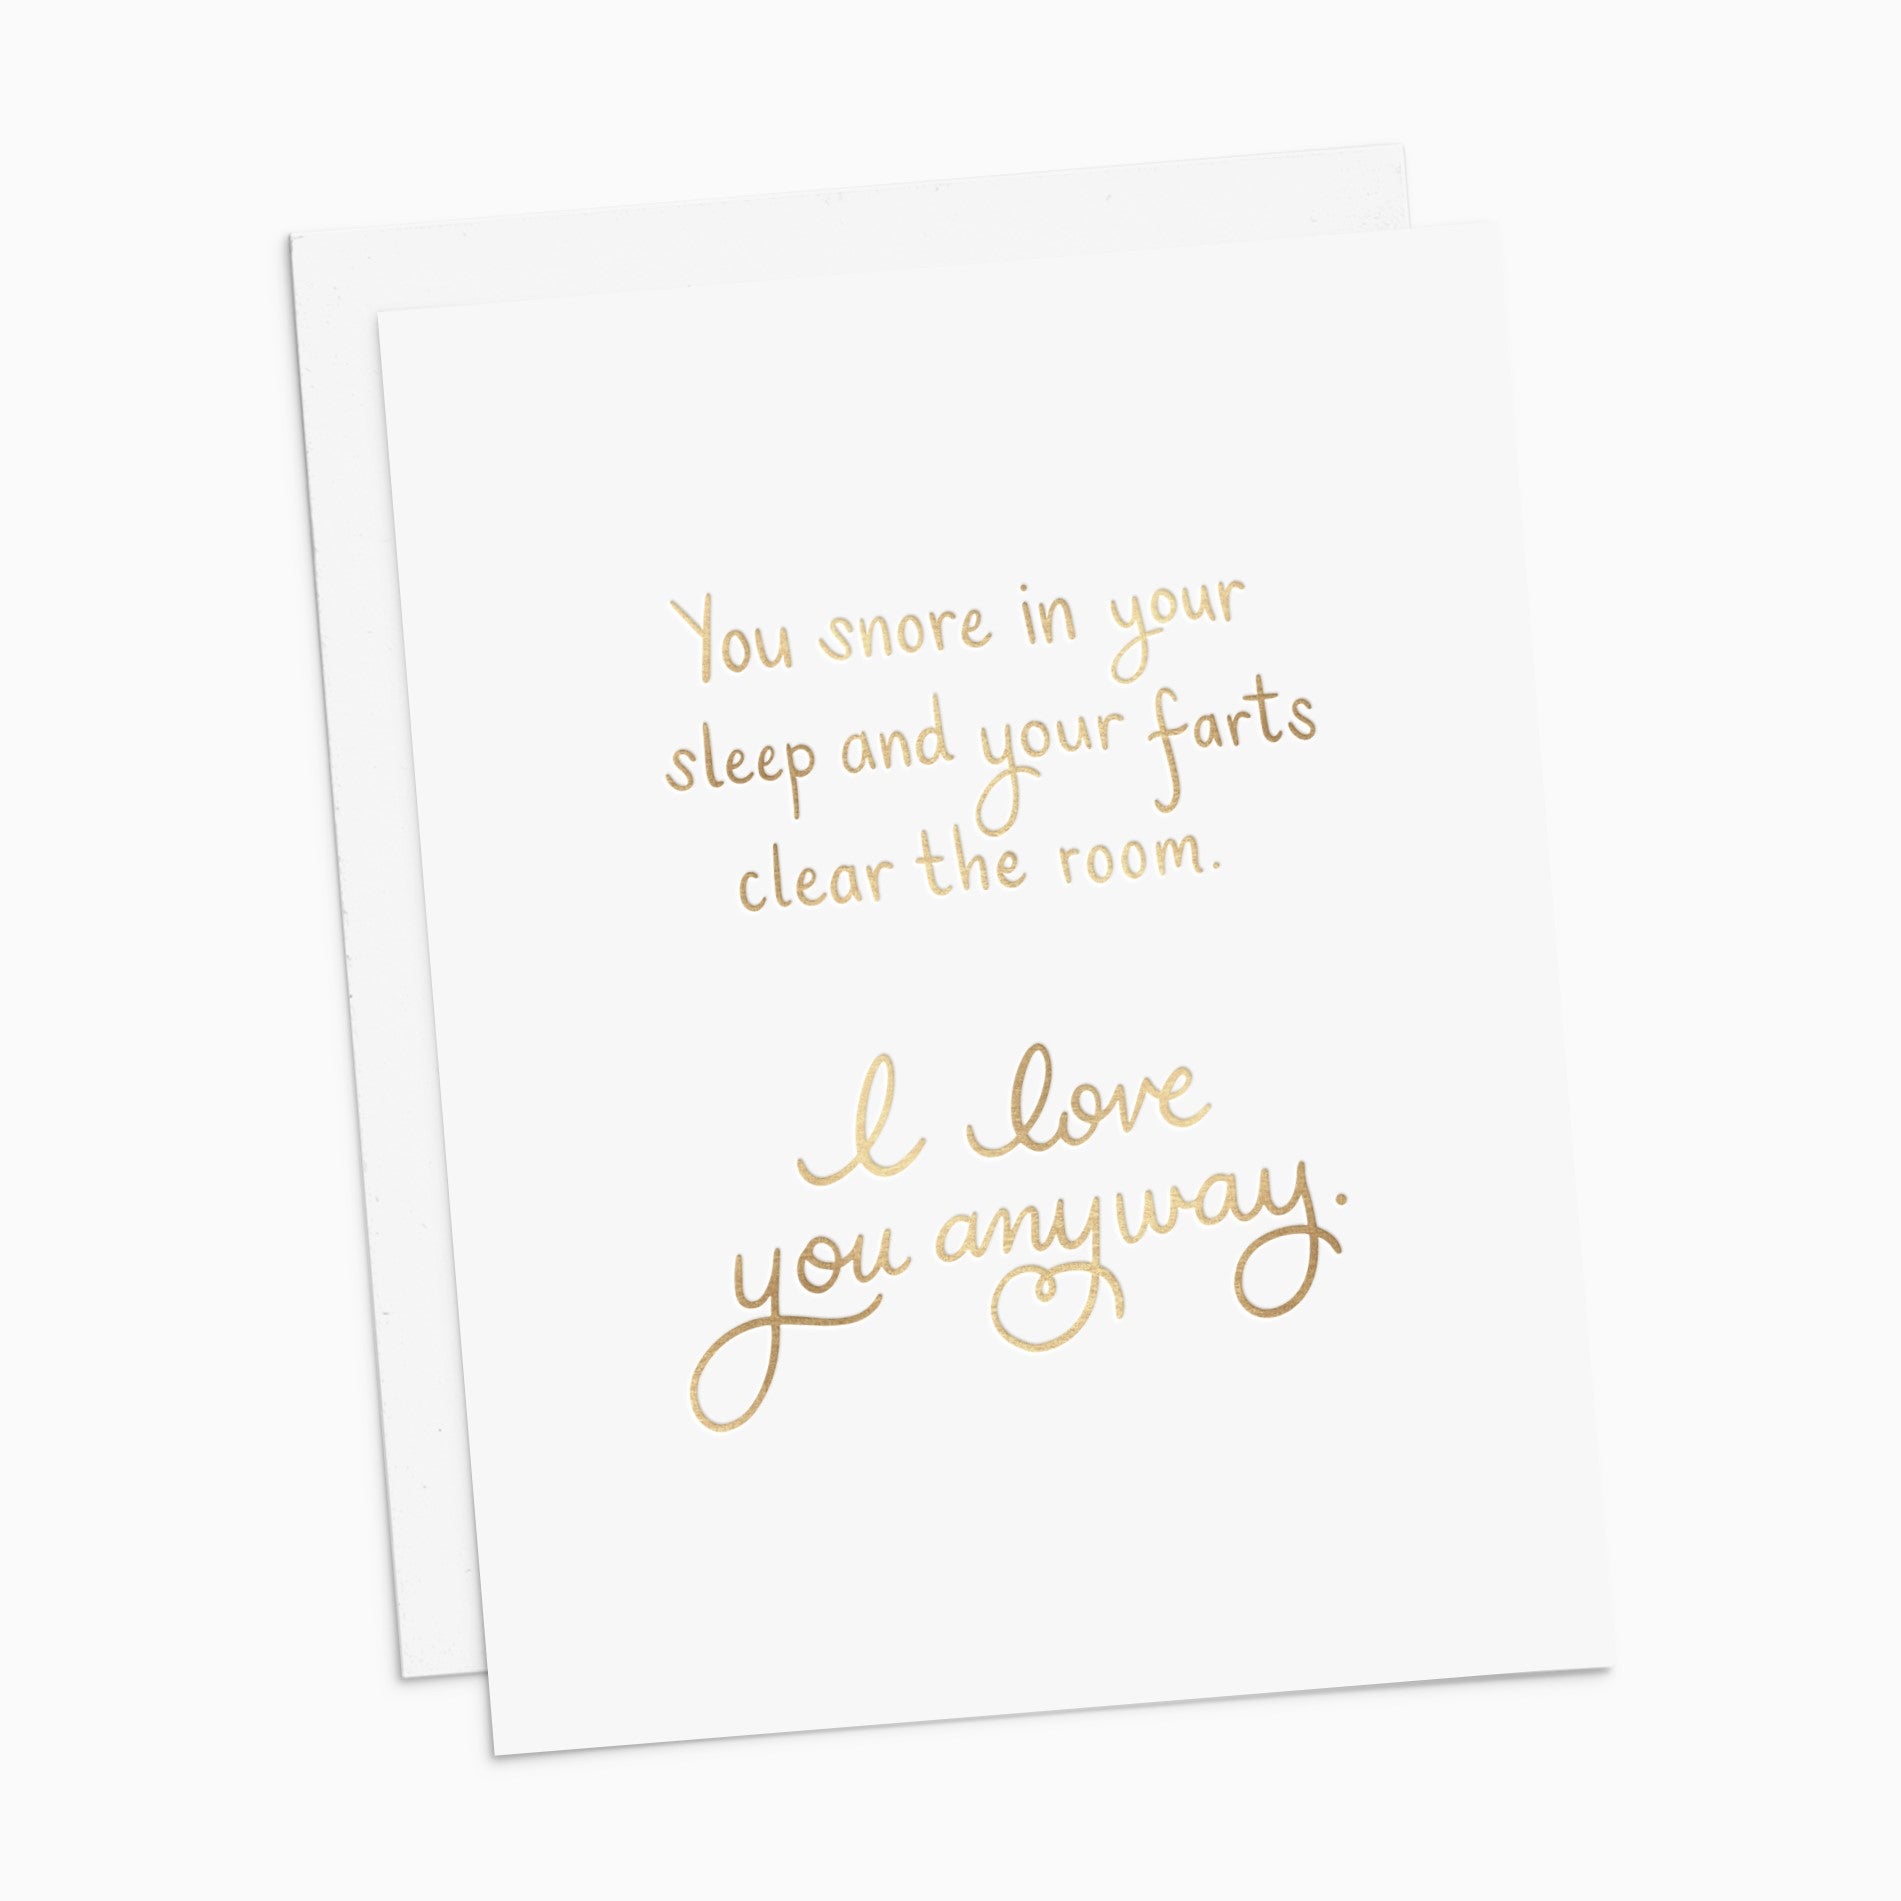 You snore in your
sleep and your farts
clear the room.
I love
you anyway.